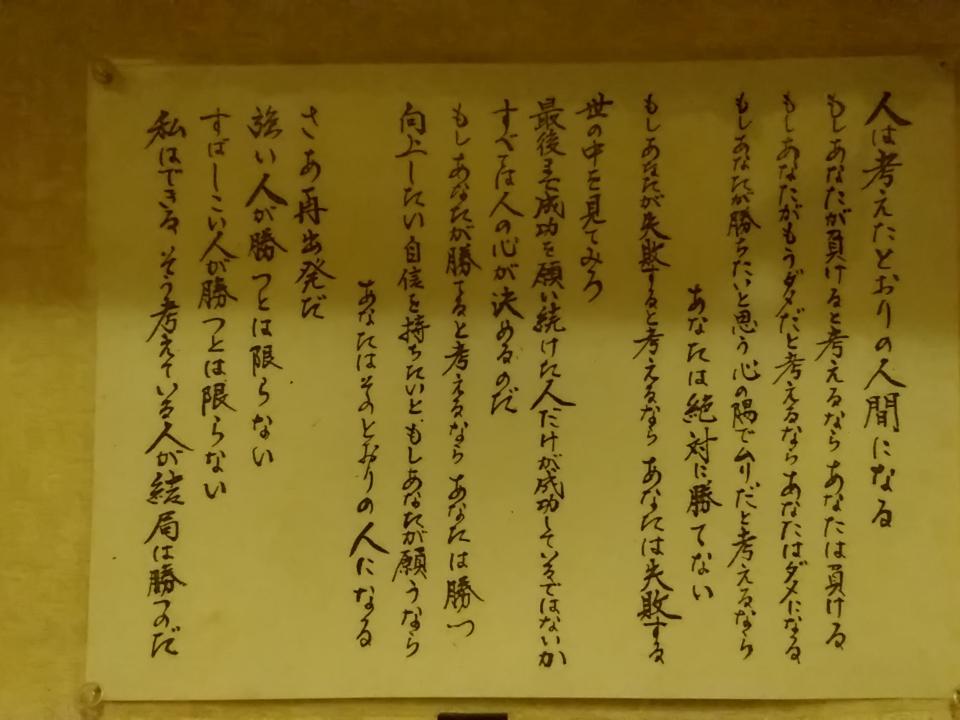 人は考えたとおりの人間になる
もしあなたが負けると考えるなら あなたは負ける
もしあなたがもうダメだと考えるなら あなたはダメになる
もしあなたが勝ちたいと思う心の隅でムリだと考えるなら
あなたは絶対に勝てない
もしあなたが失敗すると考えるなら あなたは失敗する
世の中を見てみろ
最後まで成功を願い続けた人だけが成功しているではないか
すべては人の心が決めるのだ
もしあなたが勝てると考えるなら あなたは勝つ
向上したい 自信を持ちたいと、もしあなたが願うなら
あなたはそのとおりの人になる
さあ再出発だ
強い人が勝つとは限らない
すばしこい人が勝つとは限らない
私はできる そう考えている人が結局は勝つのだ